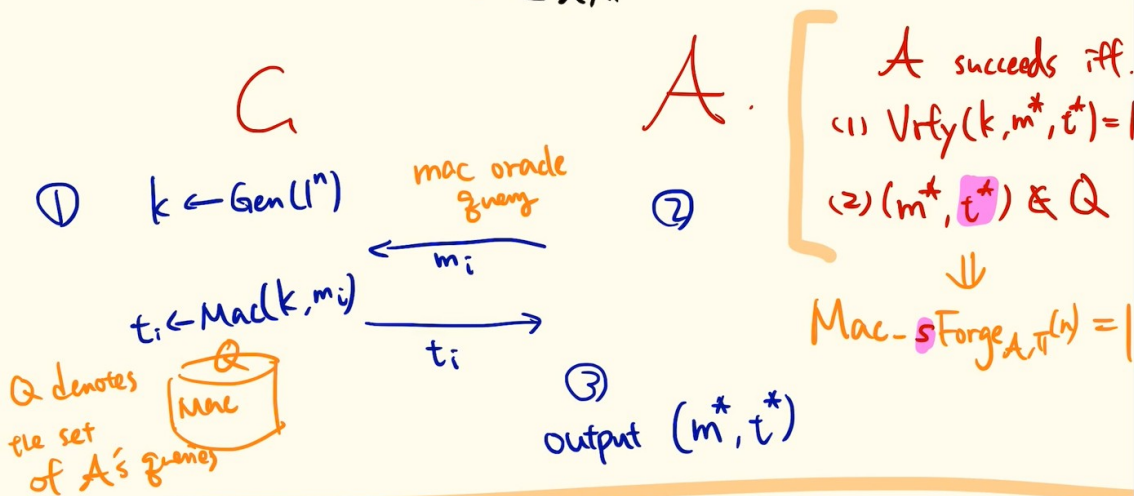 C
A.
① k ← Gen(1ⁿ)
mac oracle
query
②
mᵢ
tᵢ ← Mac(k, mᵢ)
tᵢ
Q
Mac
Q denotes
the set
of A's queries
③
output (m*, t*)
A succeeds iff.
(1) Vrfy(k, m*, t*) = 1
(2) (m*, t*) ∉ Q
⇓
Mac-sForge_{A,π}(n) = 1